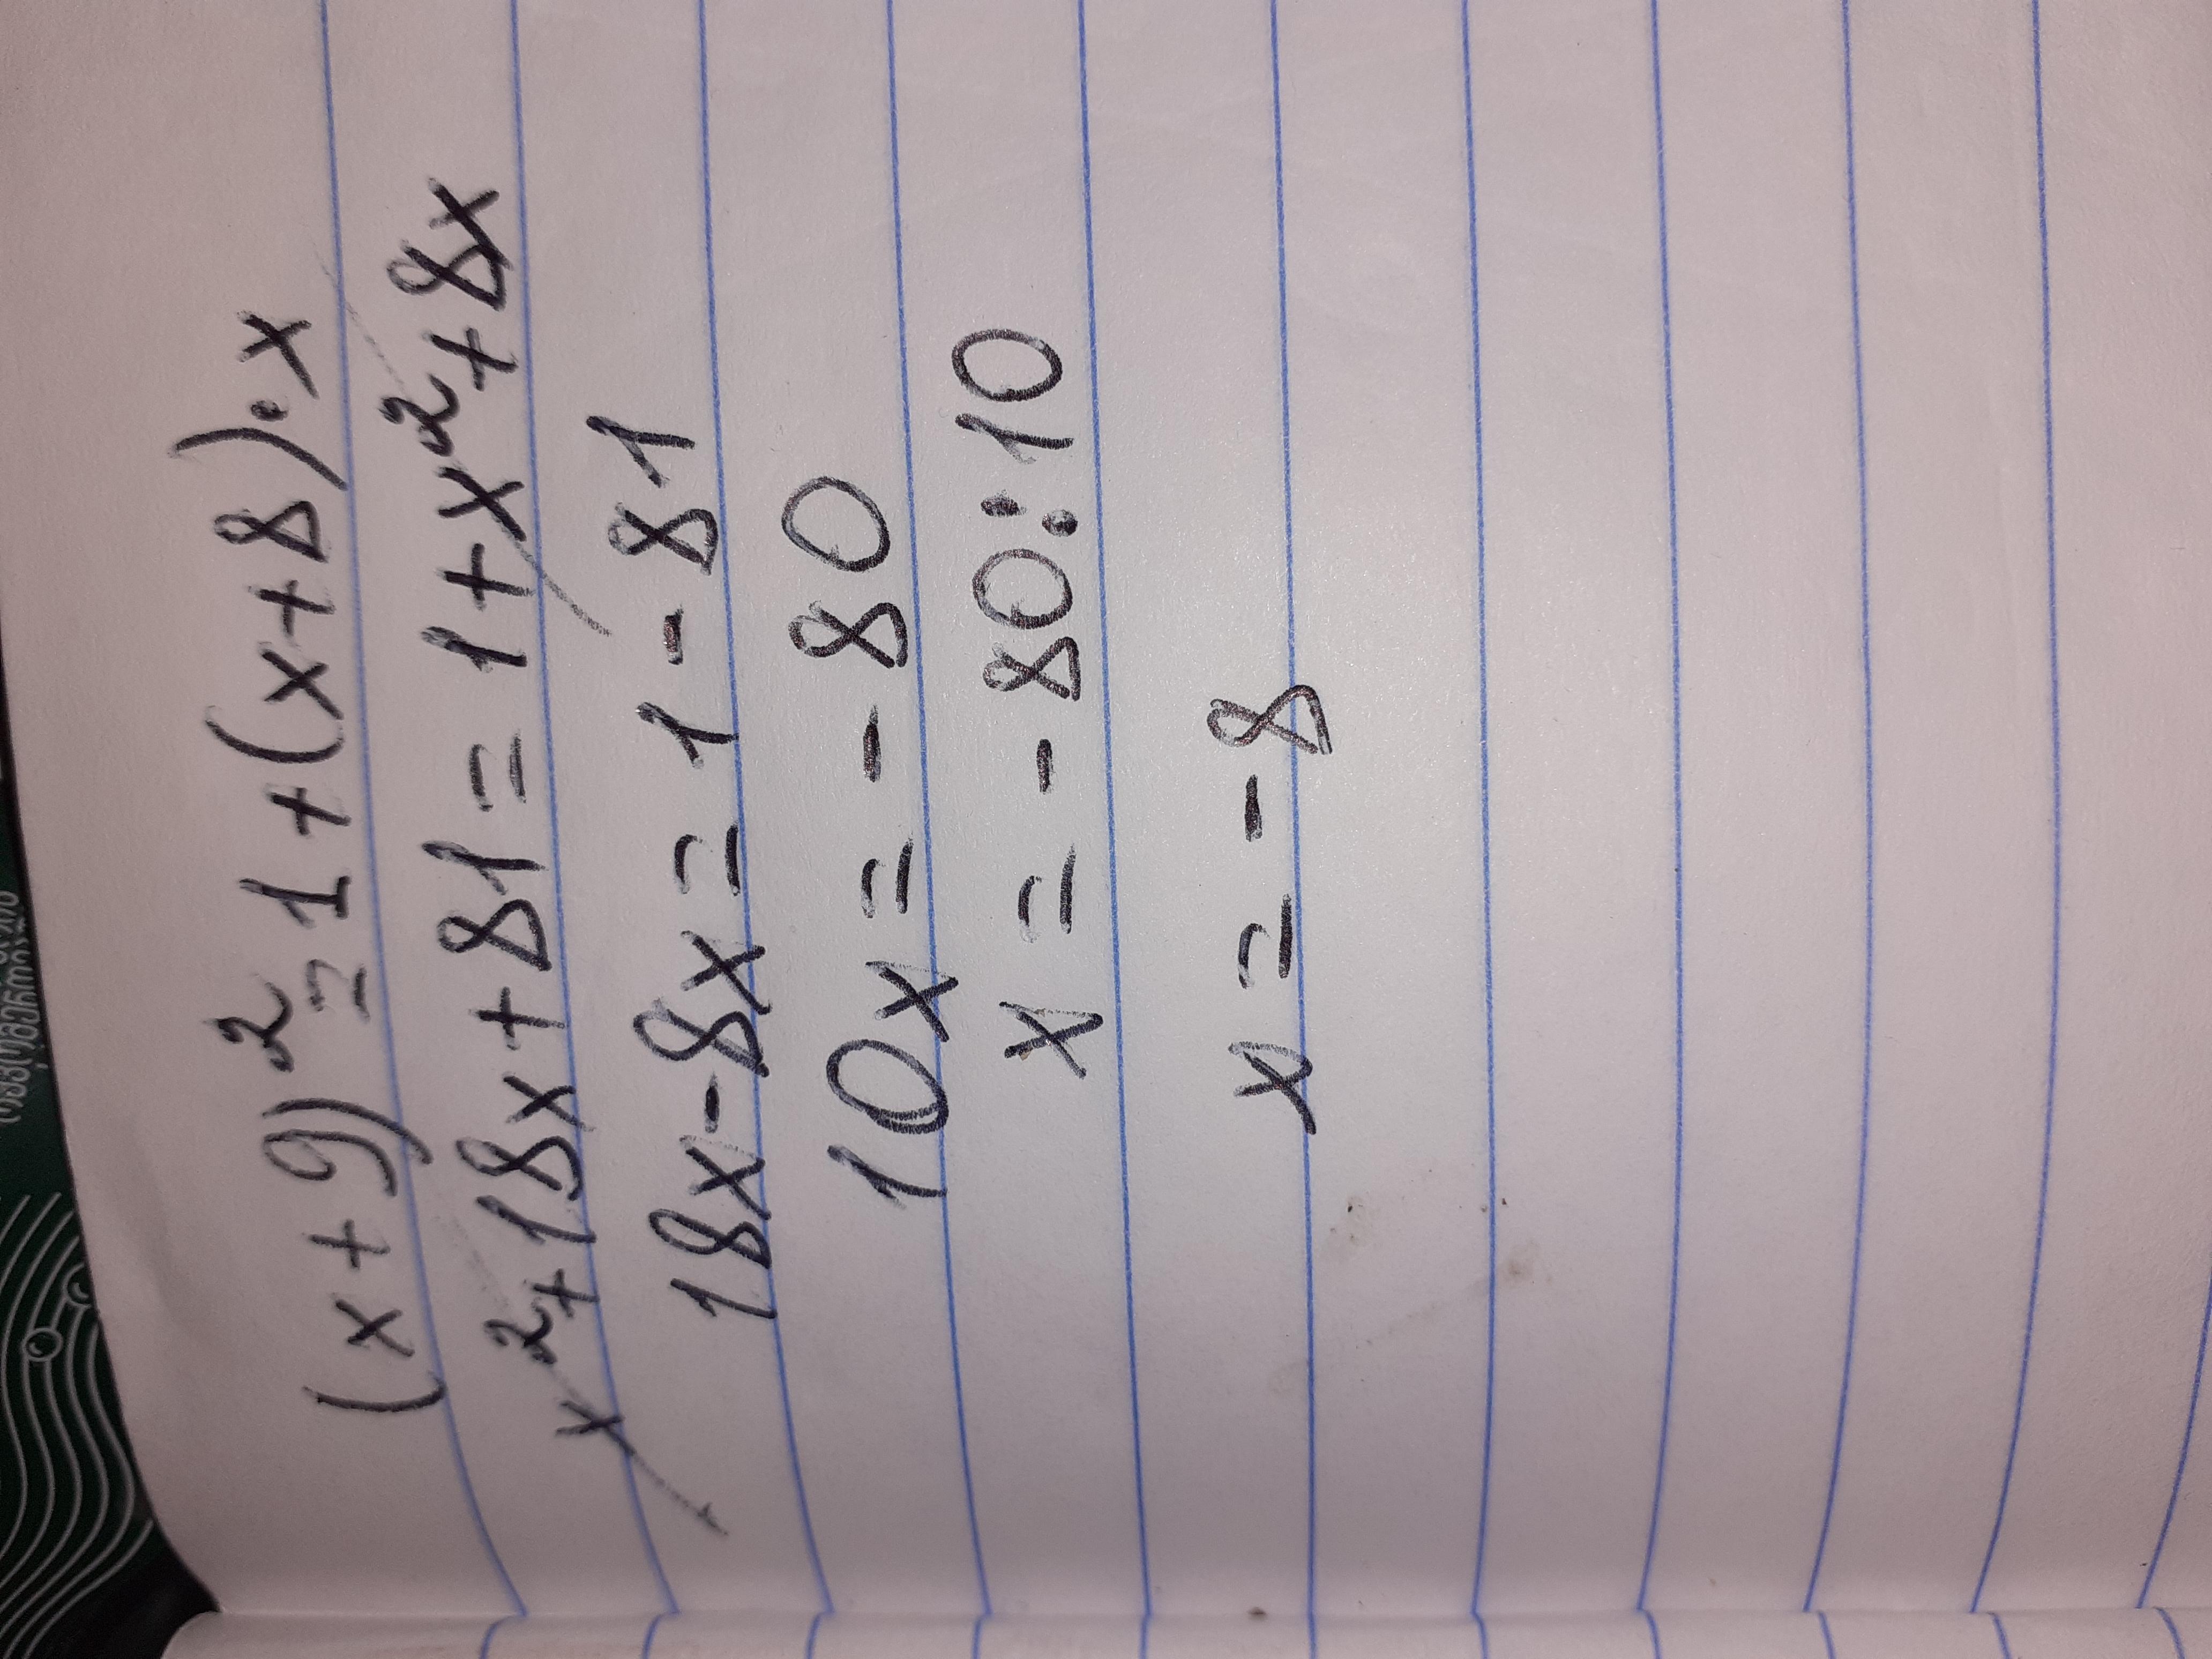 (x+9)²=1+(x+8)·x
x²+18x+81=1+x²+8x
18x-8x=1-81
10x=-80
x=-80:10
x=-8